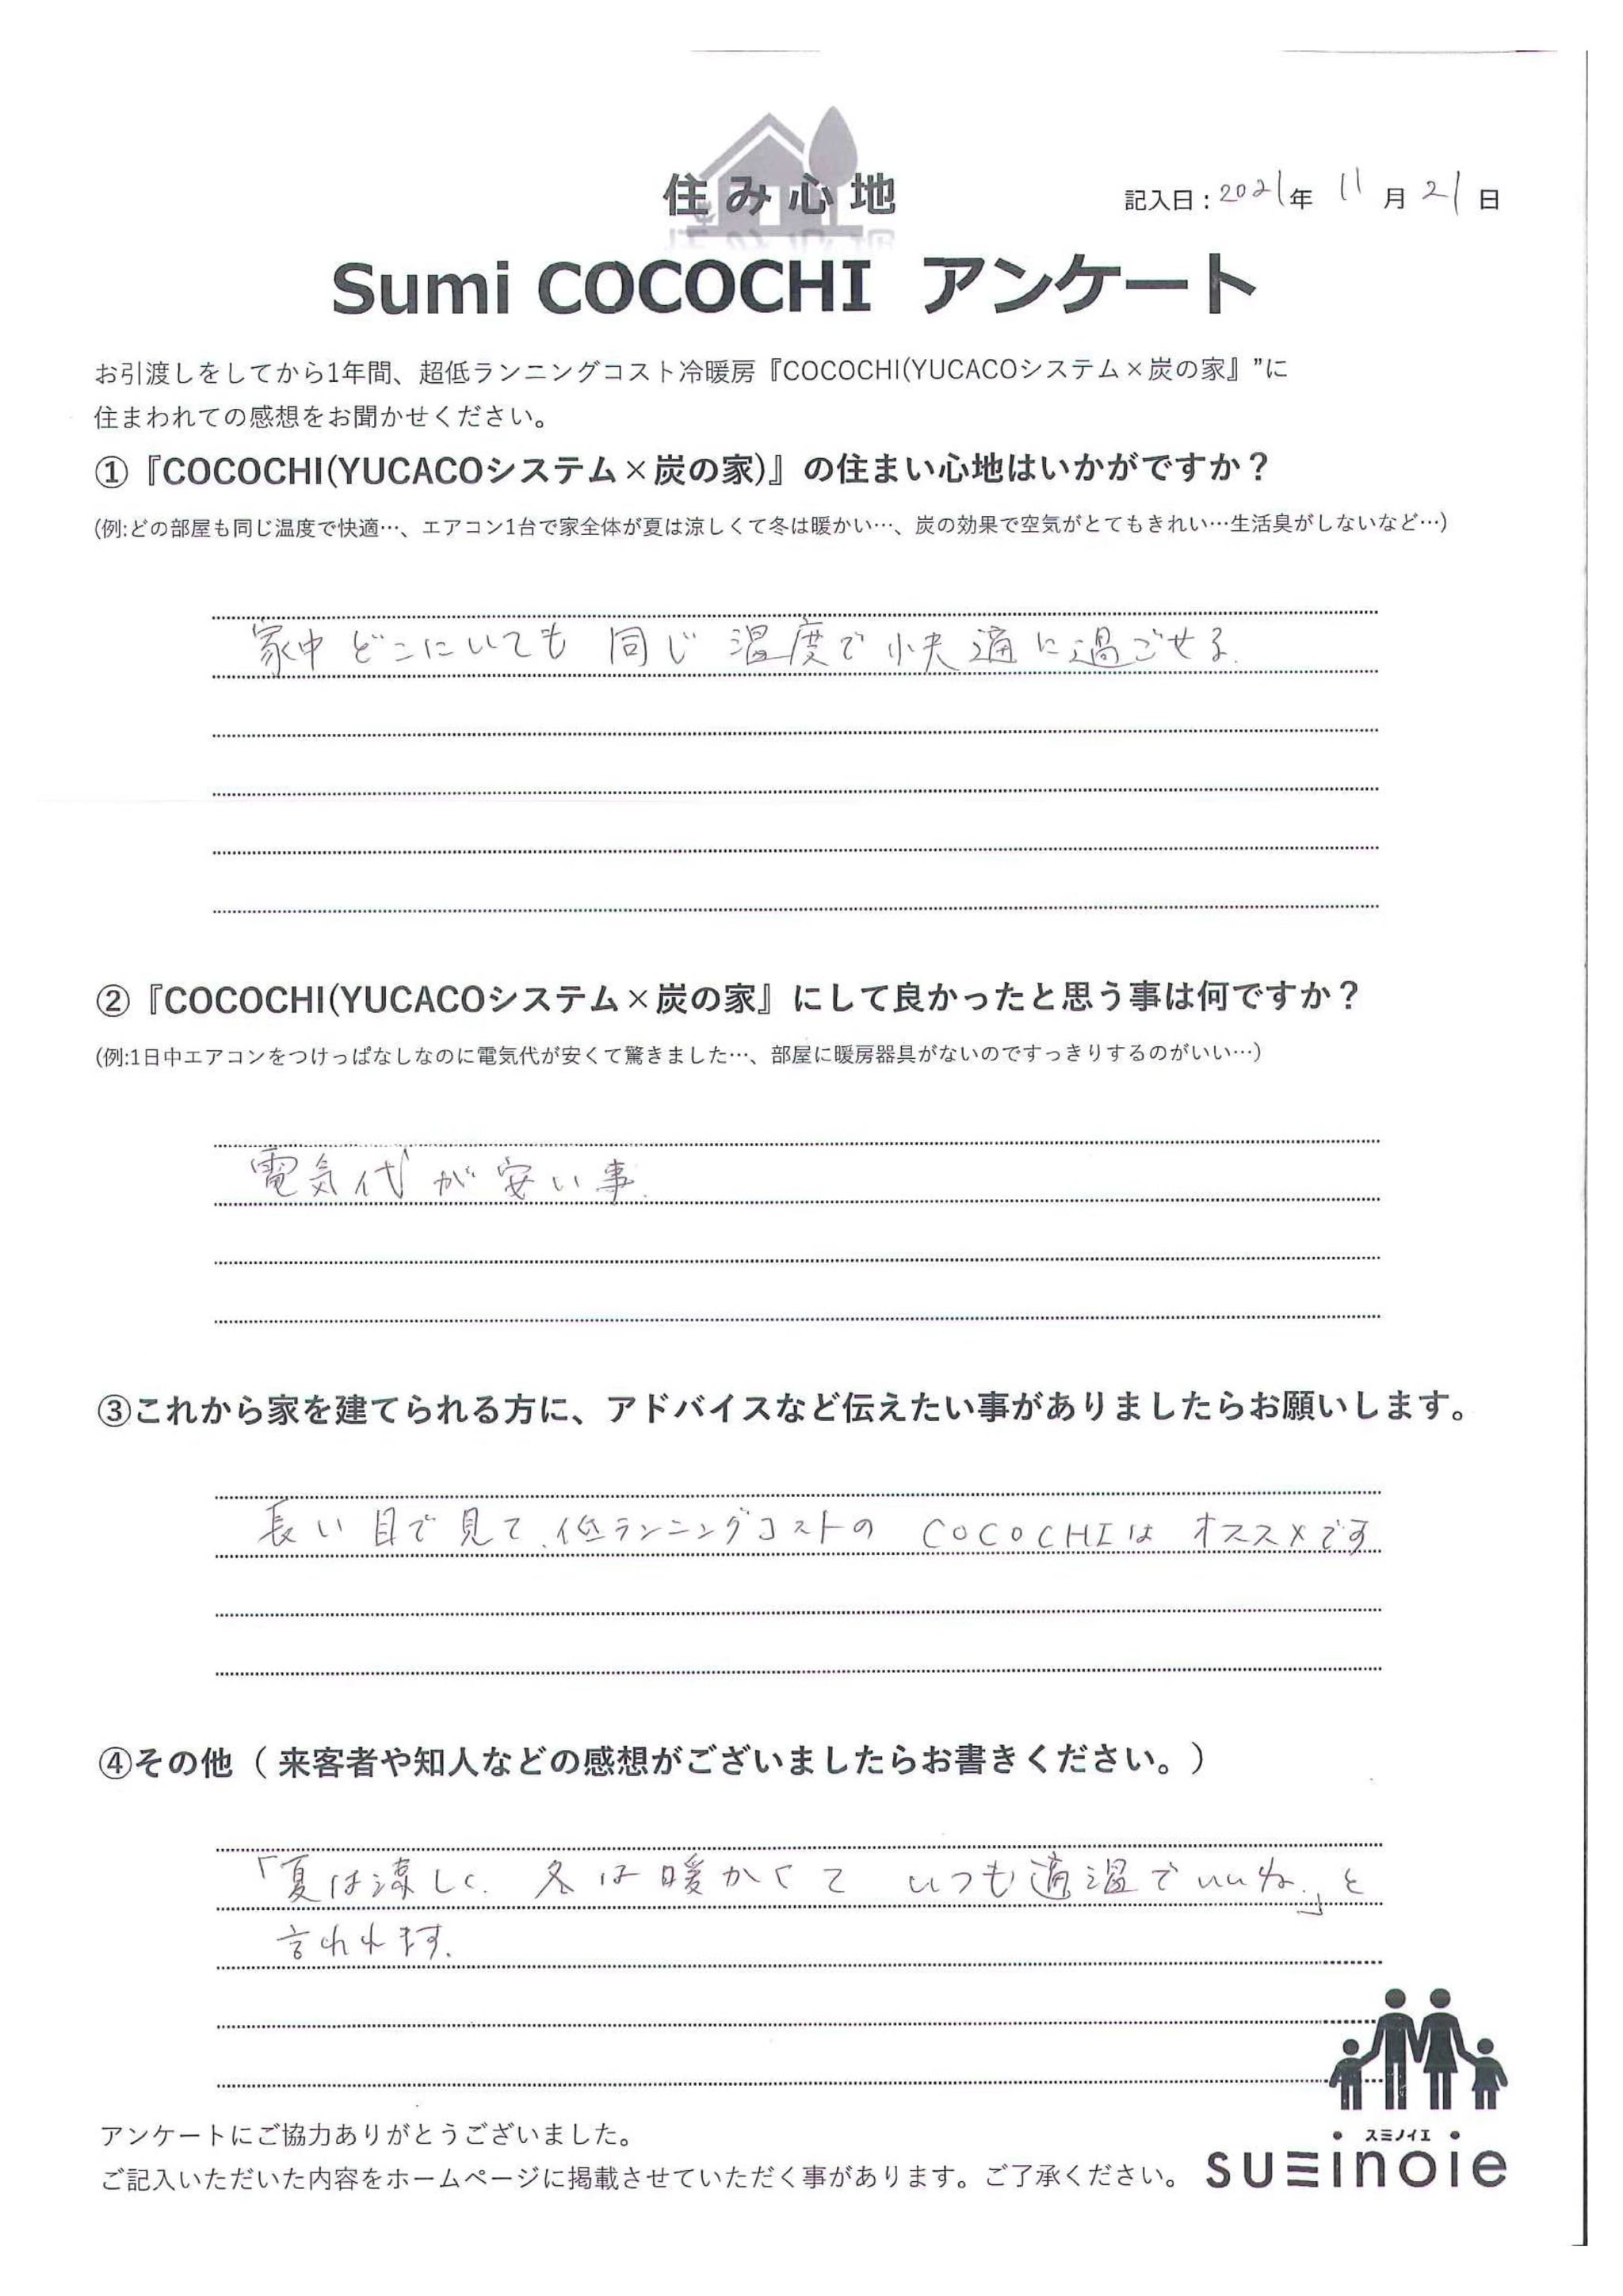 住み心地
記入日:2021年 11月21日
Sumi COCOCHI アンケート
お引渡しをしてから1年間、超低ランニングコスト冷暖房『COCOCHI(YUCACOシステム×炭の家』”に
住まわれての感想をお聞かせください。
①『COCOCHI(YUCACOシステム×炭の家)』の住まい心地はいかがですか？
(例:どの部屋も同じ温度で快適…、エアコン1台で家全体が夏は涼しくて冬は暖かい…、炭の効果で空気がとてもきれい…生活臭がしないなど…)
家中どこにいても同じ温度で快適に過ごせる.
②『COCOCHI(YUCACOシステム×炭の家』にして良かったと思う事は何ですか？
(例:1日中エアコンをつけっぱなしなのに電気代が安くて驚きました…、部屋に暖房器具がないのですっきりするのがいい…)
電気代が安い事.
③これから家を建てられる方に、アドバイスなど伝えたい事がありましたらお願いします。
長い目で見て、低ランニングコストの COCOCHIは オススメです
④その他（ 来客者や知人などの感想がございましたらお書きください。）
「夏は涼しく、冬は暖かくて いつも適温でいいね.」と
言われます.
アンケートにご協力ありがとうございました。
ご記入いただいた内容をホームページに掲載させていただく事があります。ご了承ください。
スミノイエ
suminoie